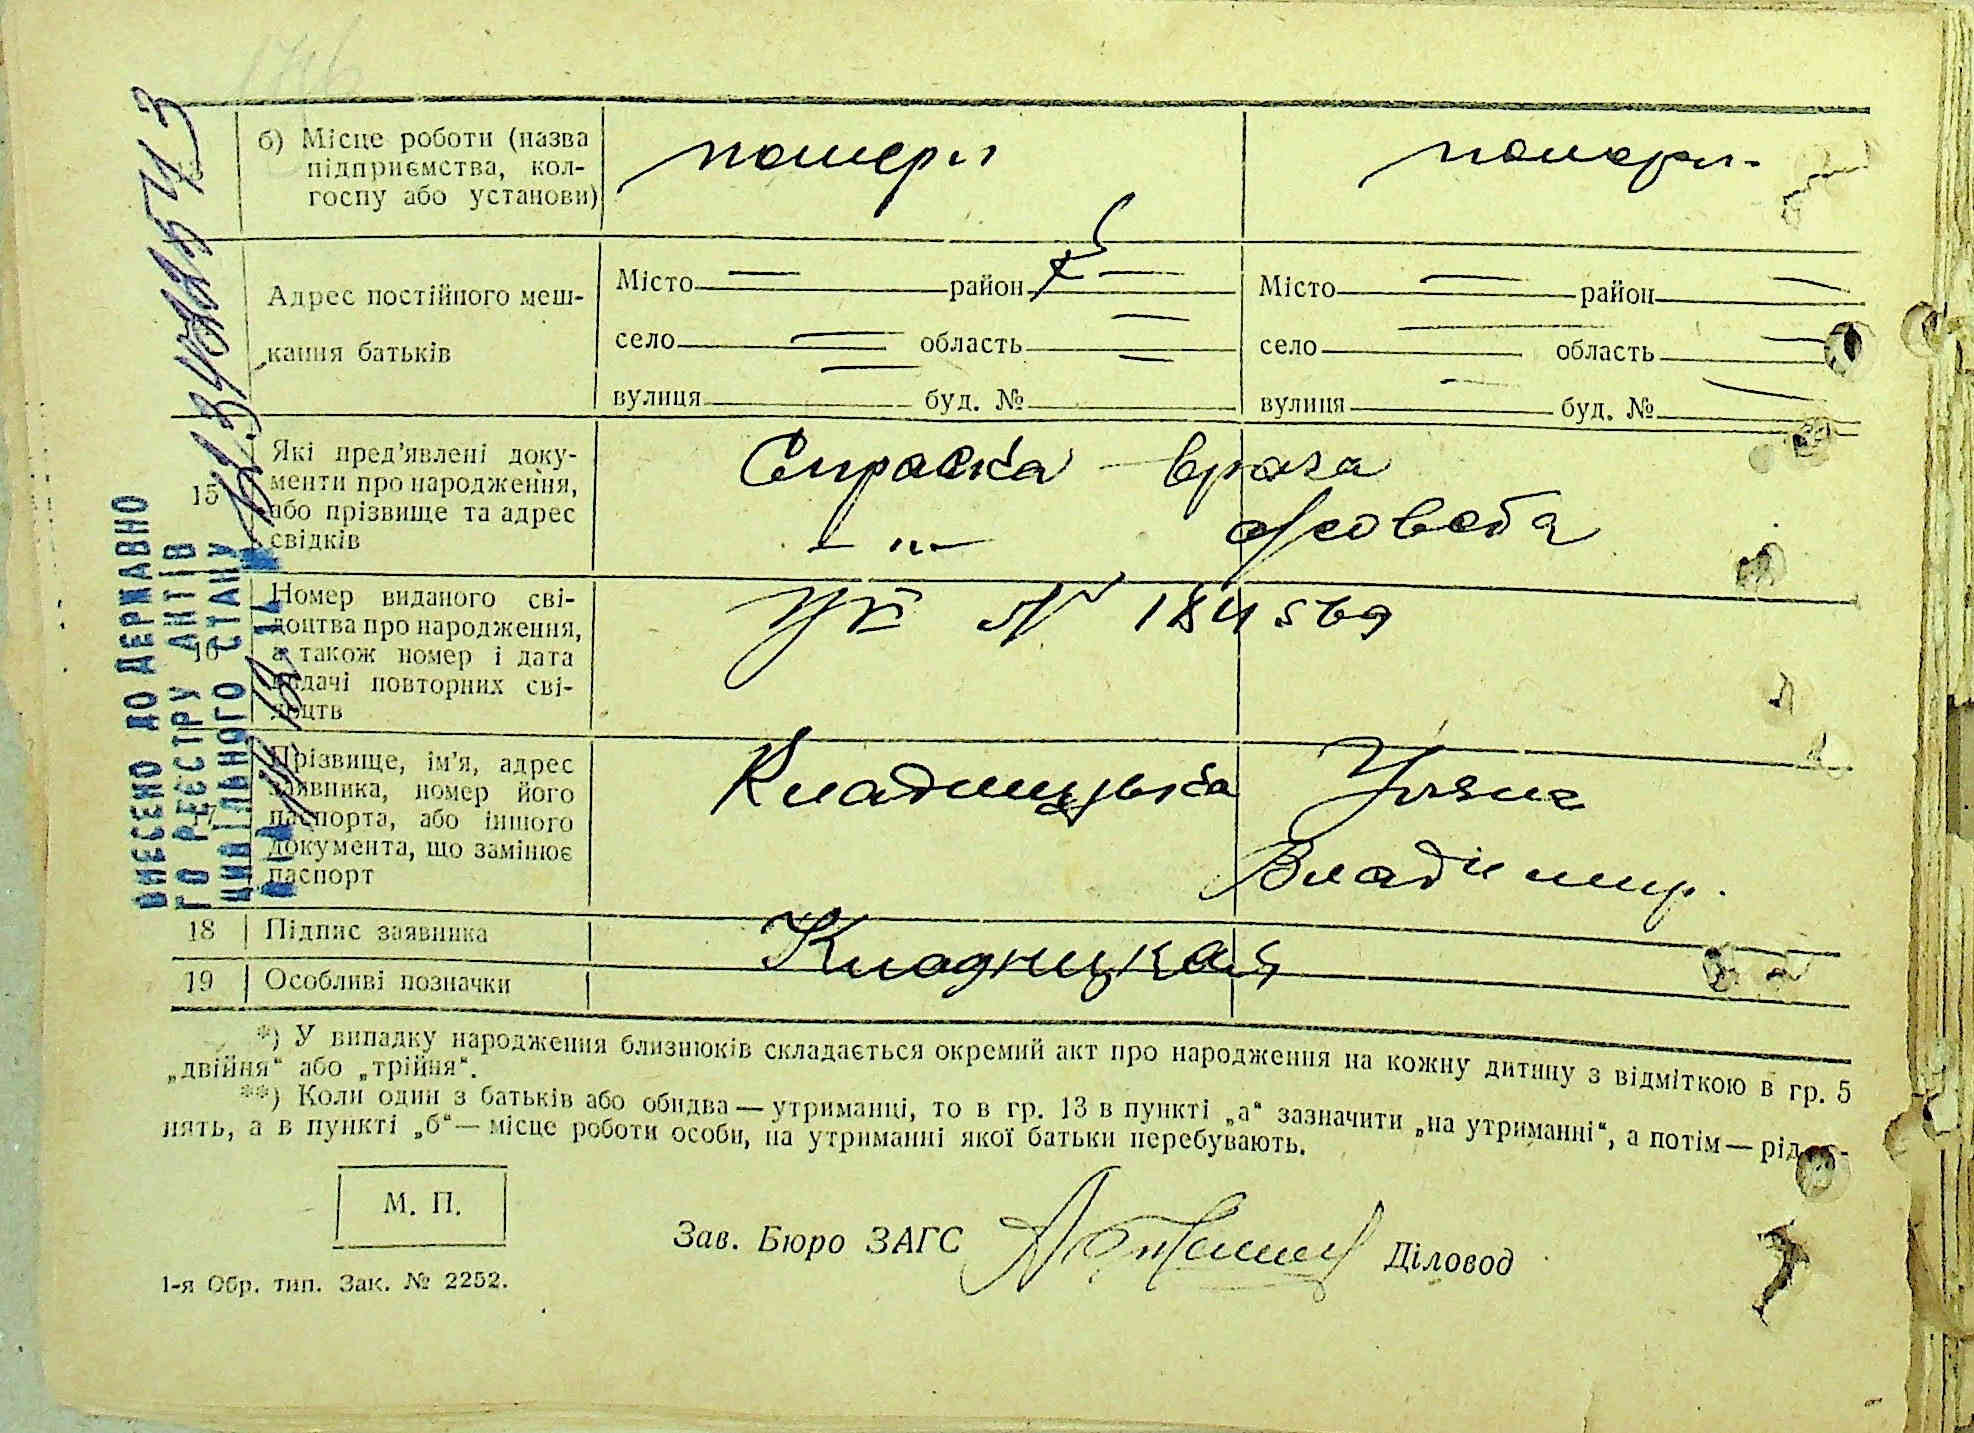 б) Місце роботи (назва
підприємства, кол-
госпу або установи)
померл
померл.
Адрес постійного меш-
кання батьків
Місто — район —
село — область —
вулиця — буд. № —
Місто — район —
село — область —
вулиця — буд. № —
15 Які пред'явлені доку-
менти про народження,
або прізвище та адрес
свідків
Справка врача
— „ — с/совета
16 Номер виданого сві-
доцтва про народження,
а також номер і дата
видачі повторних сві-
доцтв
№ 184569
17 Прізвище, ім'я, адрес
заявника, номер його
паспорта, або іншого
документа, що замінює
паспорт
Кладницька Уляна
Владимир.
18 Підпис заявника
Кладницкая
19 Особливі позначки
ВНЕСЕНО ДО ДЕРЖАВНО
ГО РЕЄСТРУ АКТІВ
ЦИВІЛЬНОГО СТАНУ
*) У випадку народження близнюків складається окремий акт про народження на кожну дитину з відміткою в гр. 5
„двійня“ або „трійня“.
**) Коли один з батьків або обидва — утриманці, то в гр. 13 в пункті „а“ зазначити „на утриманні“, а потім — рід
нять, а в пункті „б“ — місце роботи особи, на утриманні якої батьки перебувають.
М. П.
Зав. Бюро ЗАГС
Діловод
1-я Обр. тип. Зак. № 2252.